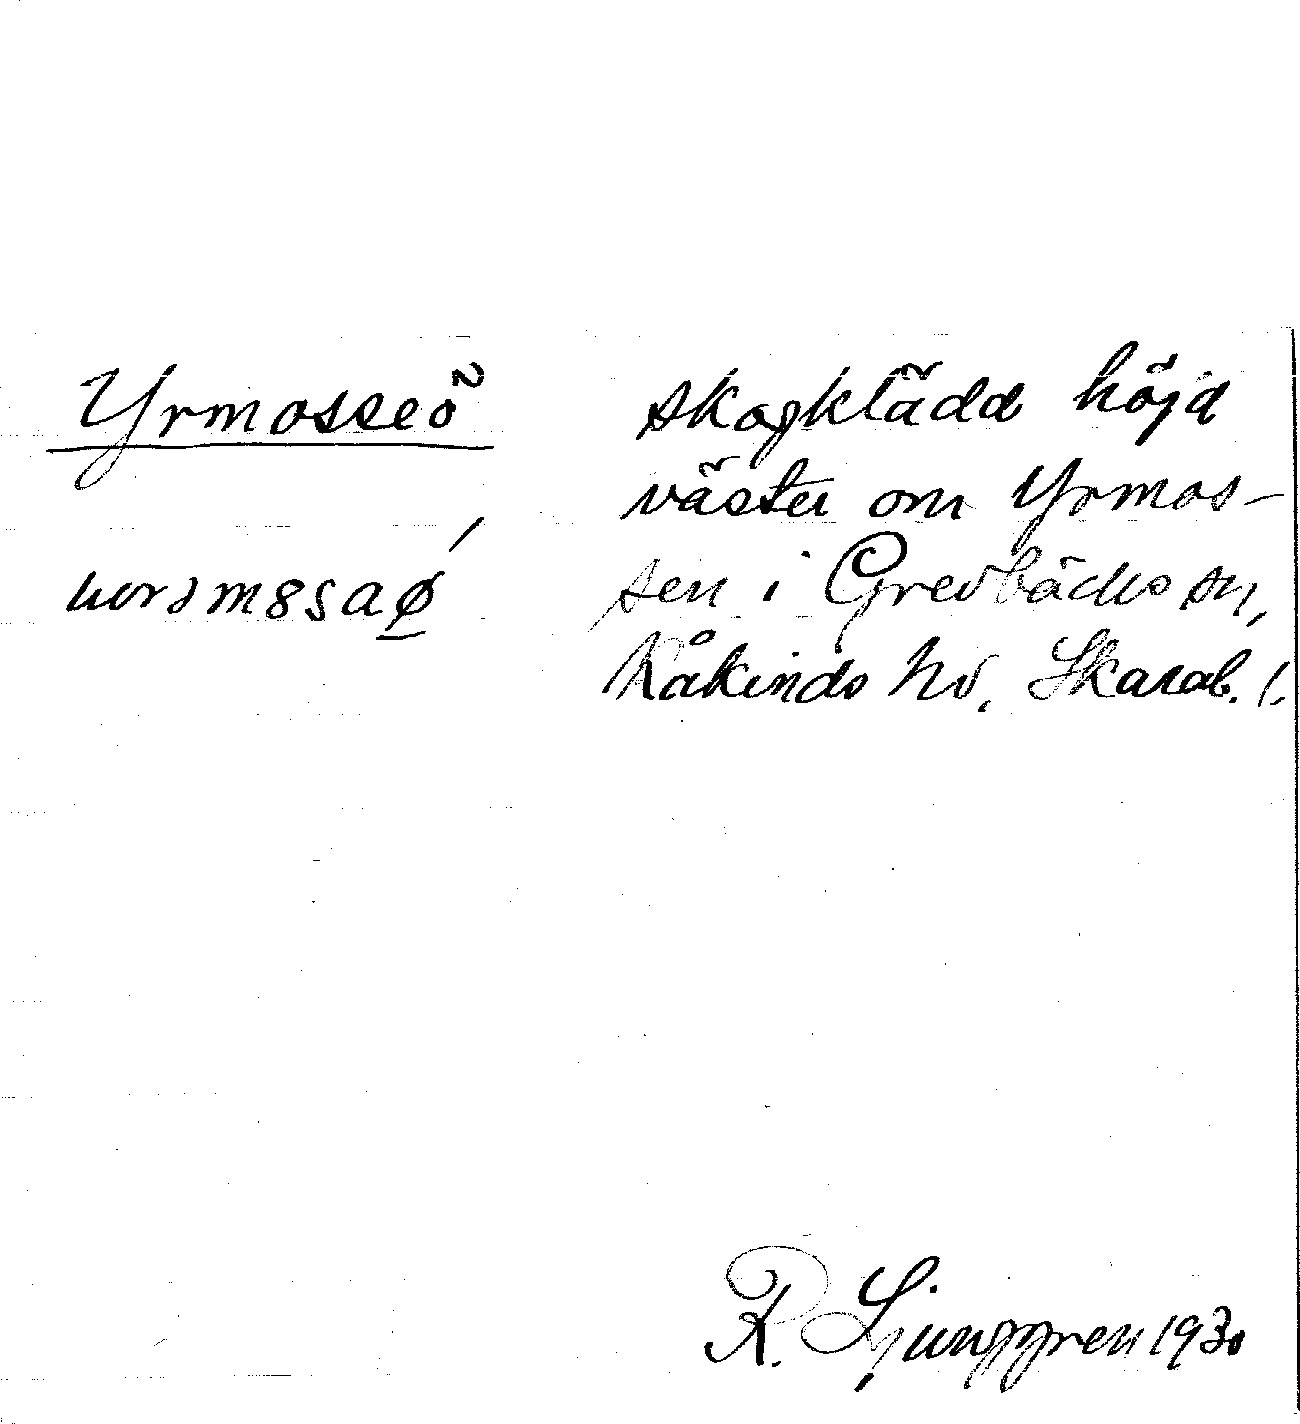 Yrmosseö
skogklädd höjd
väster om Yrmos-
sen i Grevbäcks sn,
Kåkinds hd. Skarab. l.
R. Ljunggren 1930